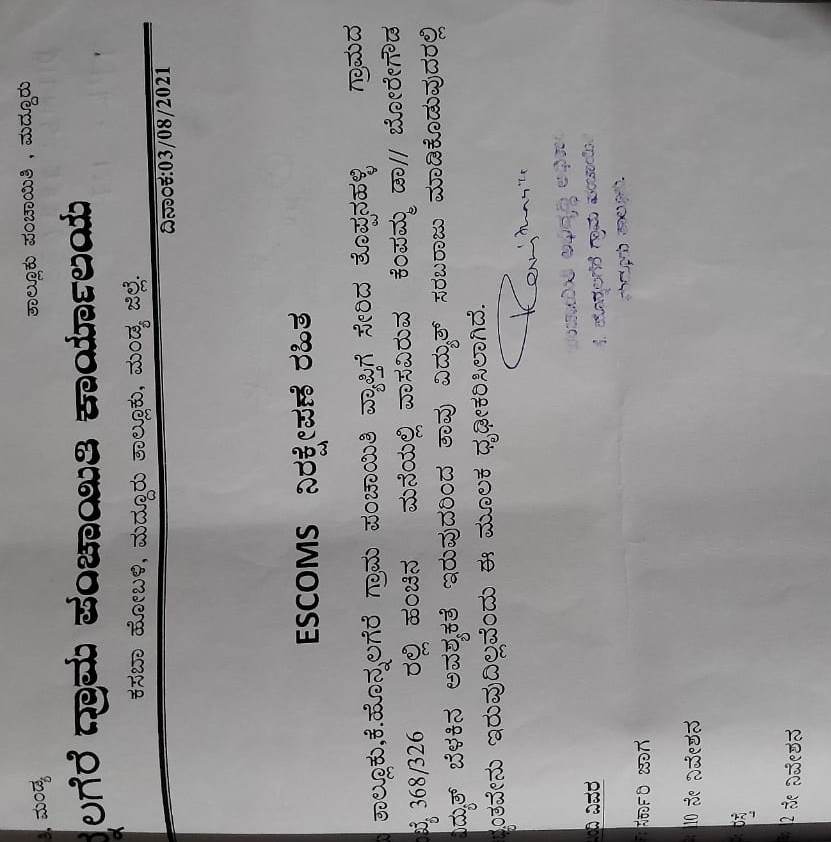 ಮಂಡ್ಯ ತಾಲ್ಲೂಕು ಪಂಚಾಯಿತಿ , ಮದ್ದೂರು
ಲಗೆರೆ ಗ್ರಾಮ ಪಂಚಾಯಿತಿ ಕಾರ್ಯಾಲಯ
ಕಸಬಾ ಹೋಬಳಿ, ಮದ್ದೂರು ತಾಲ್ಲೂಕು, ಮಂಡ್ಯ ಜಿಲ್ಲೆ.
ದಿನಾಂಕ:03/08/2021
ESCOMS ನಿರಕ್ಷೇಪಣೆ ರಹಿತ
ತಾಲ್ಲೂಕು,ಕೆ.ಹೊನ್ನಲಗೆರೆ ಗ್ರಾಮ ಪಂಚಾಯಿತಿ ವ್ಯಾಪ್ತಿಗೆ ಸೇರಿದ ತೊಪ್ಪನಹಳ್ಳಿ ಗ್ರಾಮದ
368/326 ರಲ್ಲಿ ಹಂಚಿನ ಮನೆಯಲ್ಲಿ ವಾಸವಿರುವ ಕೆಂಪಮ್ಮ ಡಾ// ಬೋರೇಗೌಡ
ವಿದ್ಯುತ್ ಬೆಳಕಿನ ಅವಶ್ಯಕತೆ ಇರುವುದರಿಂದ ತಾವು ವಿದ್ಯುತ್ ಸರಬರಾಜು ಮಾಡಿಕೊಡುವುದರಲ್ಲಿ
ಇರುವುದಿಲ್ಲವೆಂದು ಈ ಮೂಲಕ ಧೃಢೀಕರಿಸಿಲಾಗಿದೆ.
ಪಂಚಾಯಿತಿ ಅಭಿವೃದ್ಧಿ
ಕೆ. ಹೊನ್ನಲಗೆರೆ ಗ್ರಾಮ ಪಂಚಾಯಿತಿ
ಮದ್ದೂರು ತಾಲ್ಲೂಕು.
ವಿವರ
ಸರ್ಕಾರಿ ಜಾಗ
110 ನೇ ನಿವೇಶನ
ರಸ್ತೆ
12 ನೇ ನಿವೇಶನ